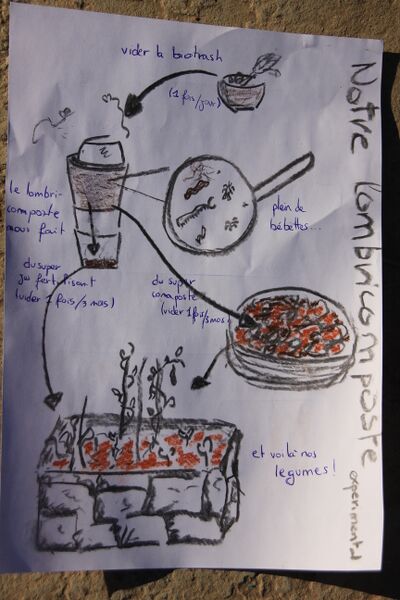 Notre lombricomposte
experimental
vider la biotrash
(1 fois/jour)
le lombri-
composte
nous fait
plein de
bébêttes...
du super
jus fertilisant
(vider 1 fois/3 mois)
du super
composte
(vider 1 fois/3 mois)
et voilà nos
legumes!